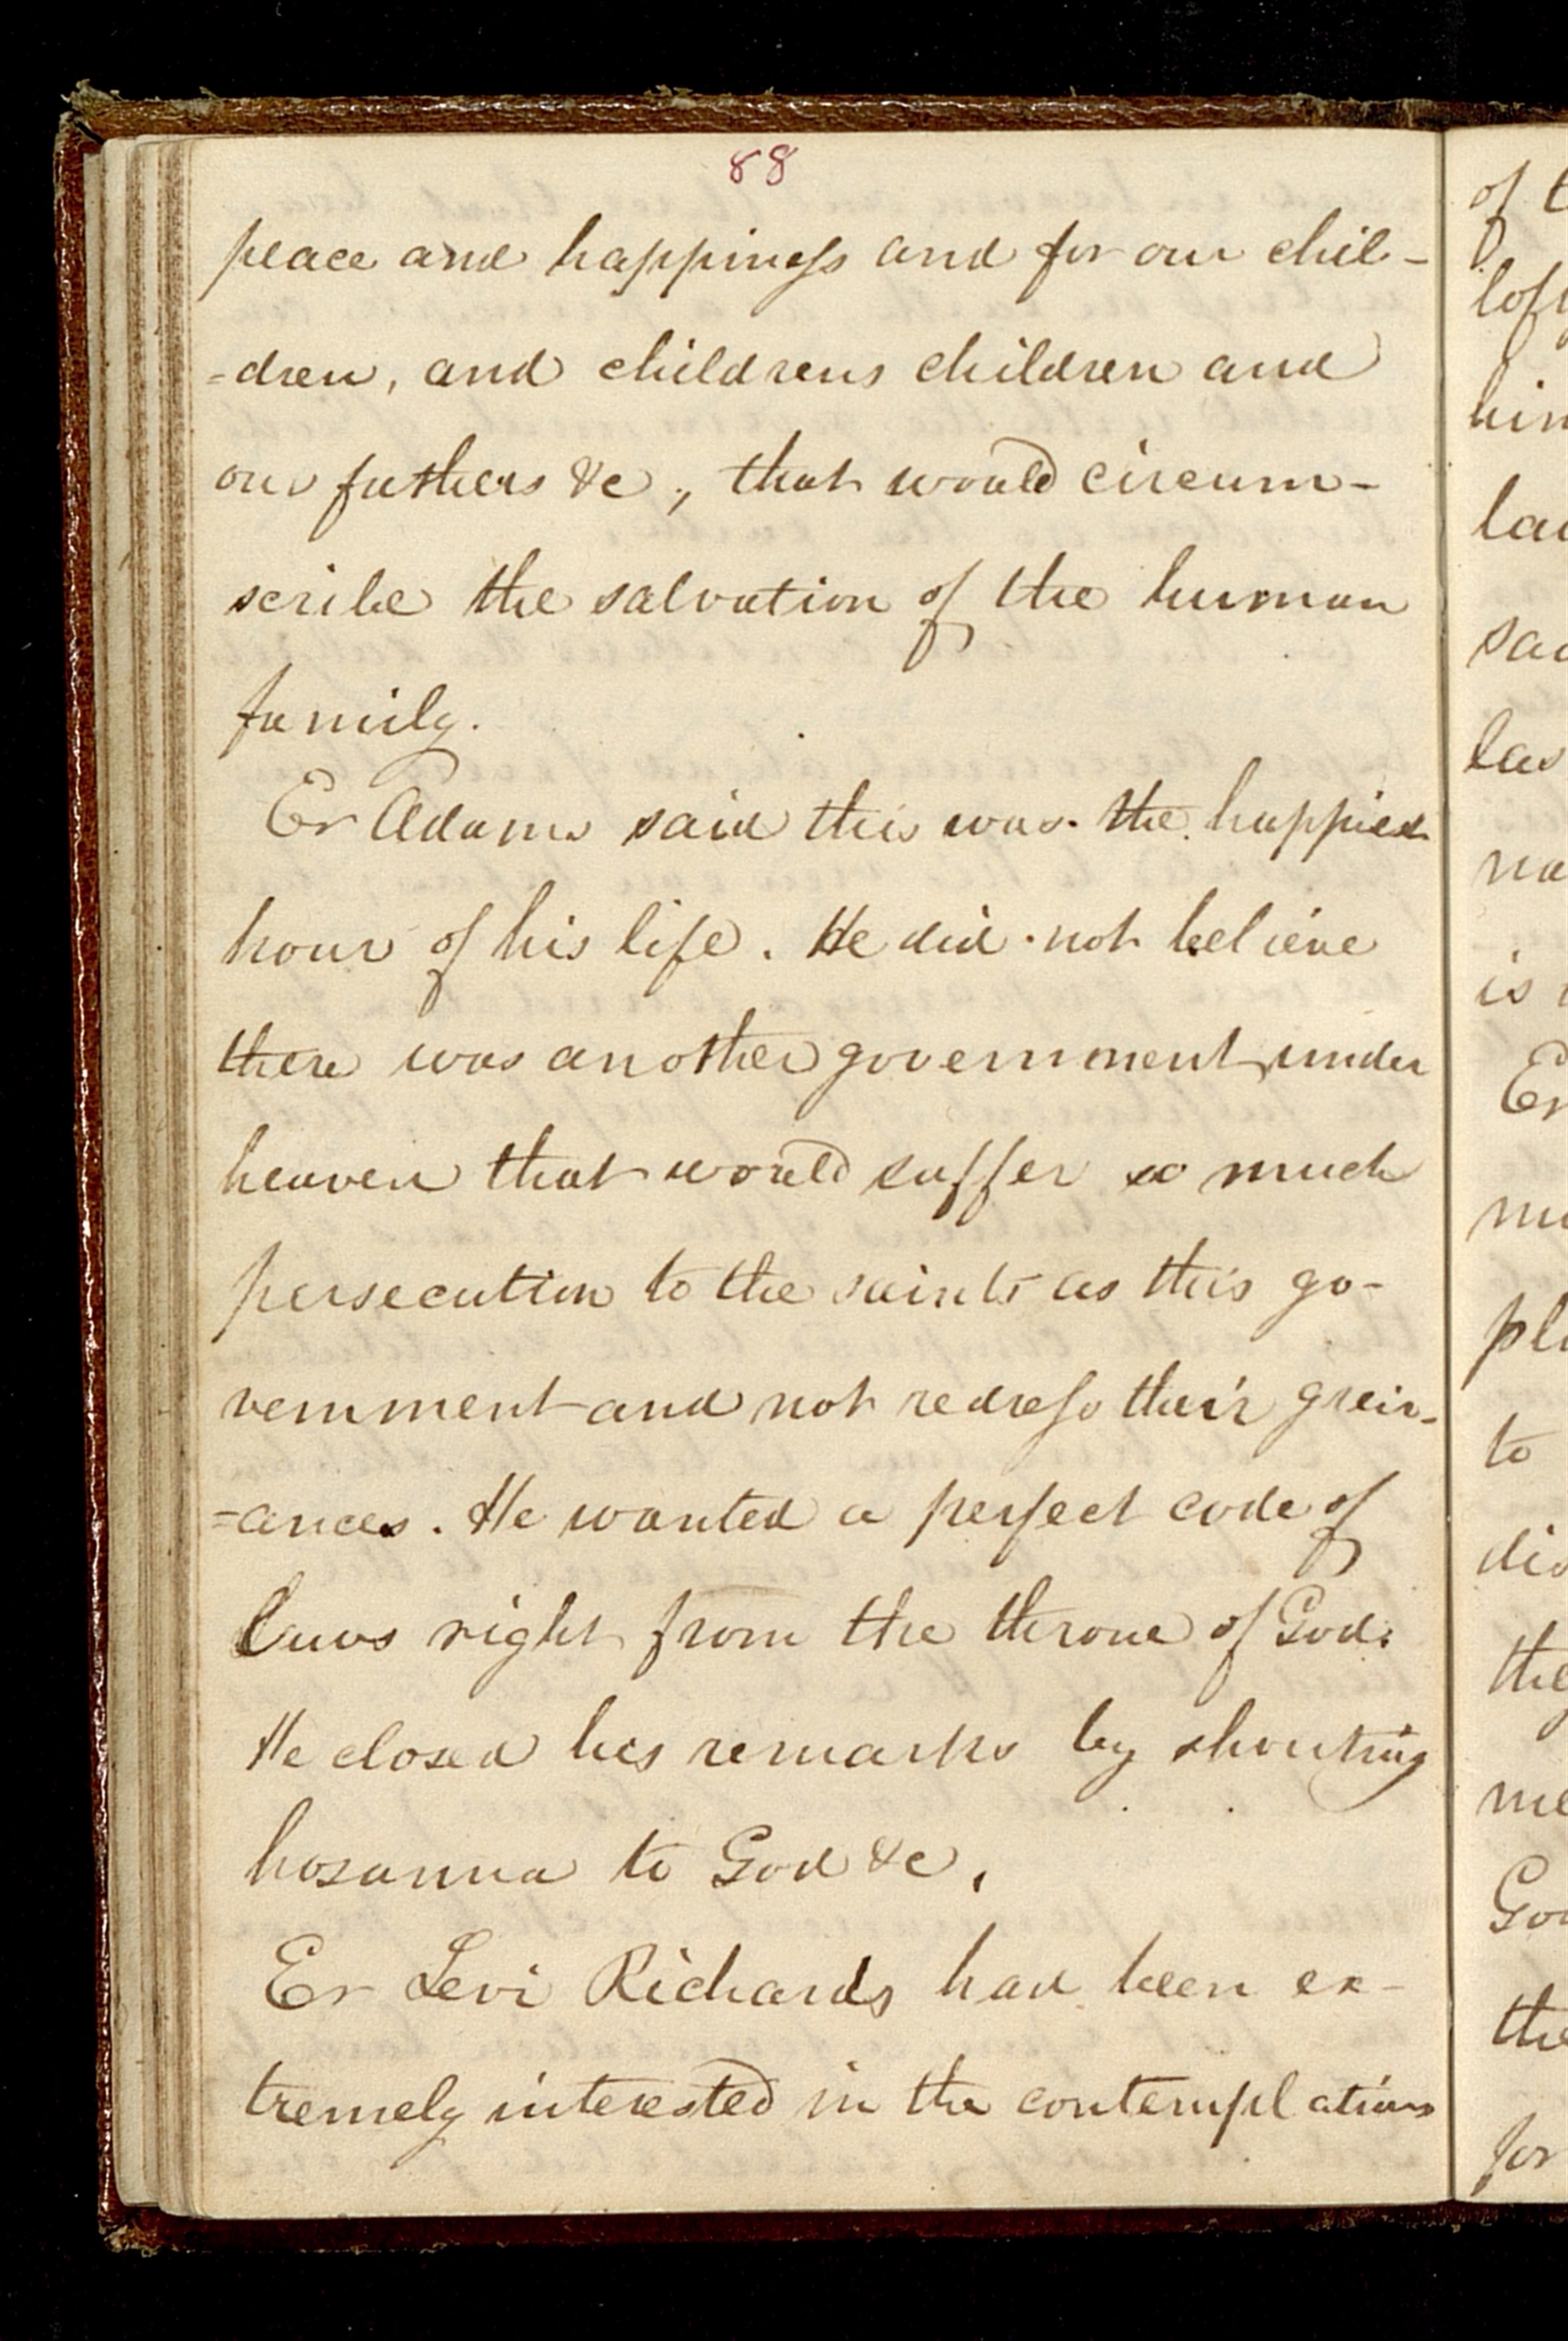 88
peace and happiness and for our chil-
=dren, and childrens children and
our fathers &c., that would circum-
scribe the salvation of the human
family.
Er Adams said this was the happiest
hour of his life. He did not believe
there was another government under
heaven that would suffer so much
persecution to the saints as this go-
vernment and not redress their greiv-
=ances. He wanted a perfect code of
laws right from the throne of God.
He closed his remarks by shouting
hosanna to God &c.
Er Levi Richards had been ex-
tremely interested in the contemplations
of
him
is
Er
to
for